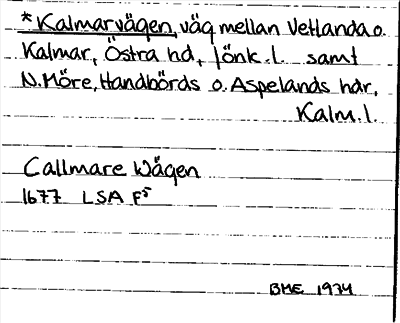 *Kalmarvägen, väg mellan Vetlanda o.
Kalmar, Östra hd, Jönk.l. samt
N.Möre, Handbörds o. Aspelands hdr,
Kalm.l.
Callmare Wägen
1677 LSA F5
BME 1974